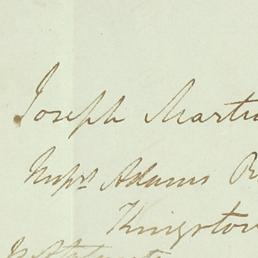 Joseph Martin
Messrs Adams R
Kingston